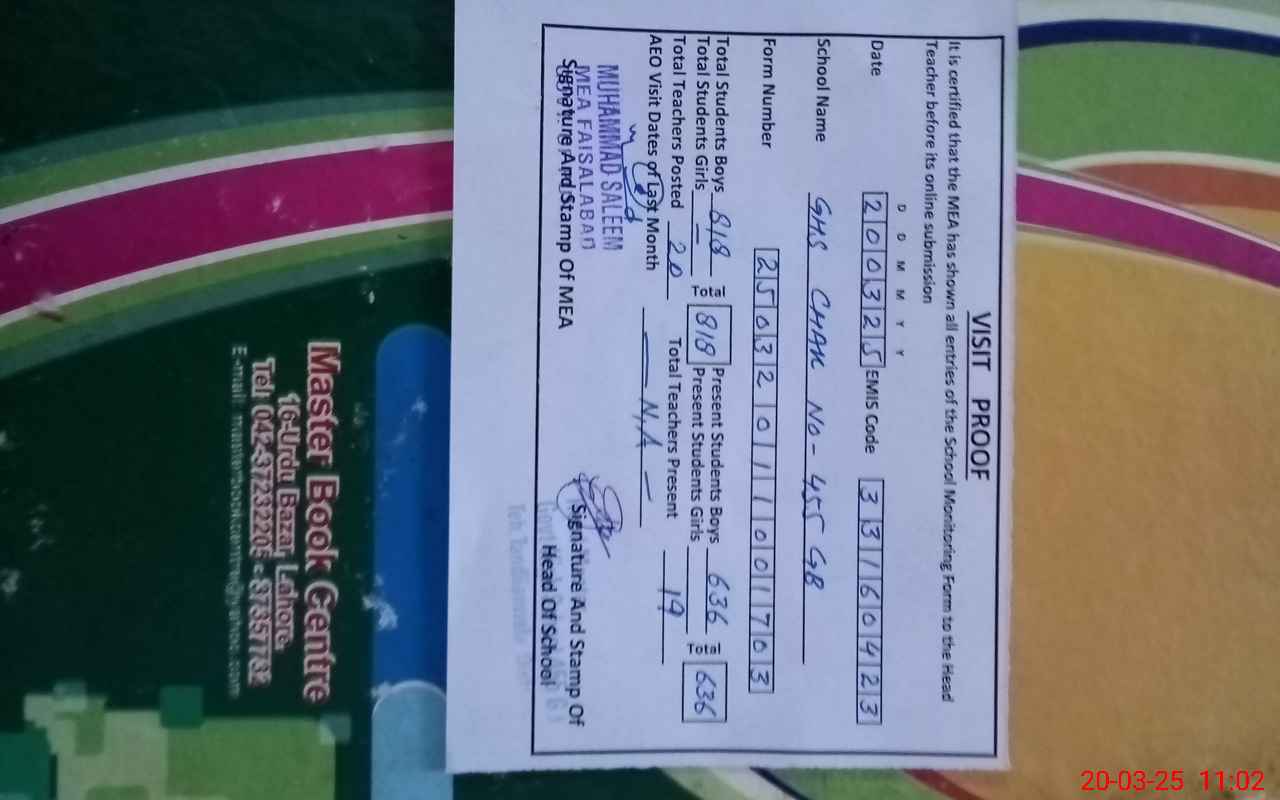 VISIT PROOF
It is certified that the MEA has shown all entries of the School Monitoring Form to the Head
Teacher before its online submission
D D M M Y Y
Date 200325 EMIS Code 33160423
School Name GHS CHAK NO- 455 GB
Form Number 250320111001703
Total Students Boys 818 Total 818 Present Students Boys 636 Total 636
Total Students Girls — Present Students Girls
Total Teachers Posted 20 Total Teachers Present 19
AEO Visit Dates of Last Month — N.A —
MUHAMMAD SALEEM
MEA FAISALABAD
Signature And Stamp Of MEA
Signature And Stamp Of
Head Of School
Master Book Centre
16-Urdu Bazar, Lahore.
Tel: 042-37232205 - 37357732
20-03-25 11:02